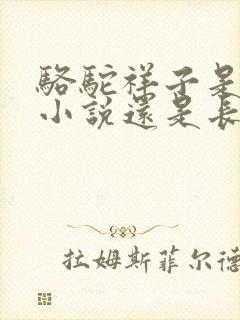 駱駝祥子是
小說還是長
拉姆斯菲尔德